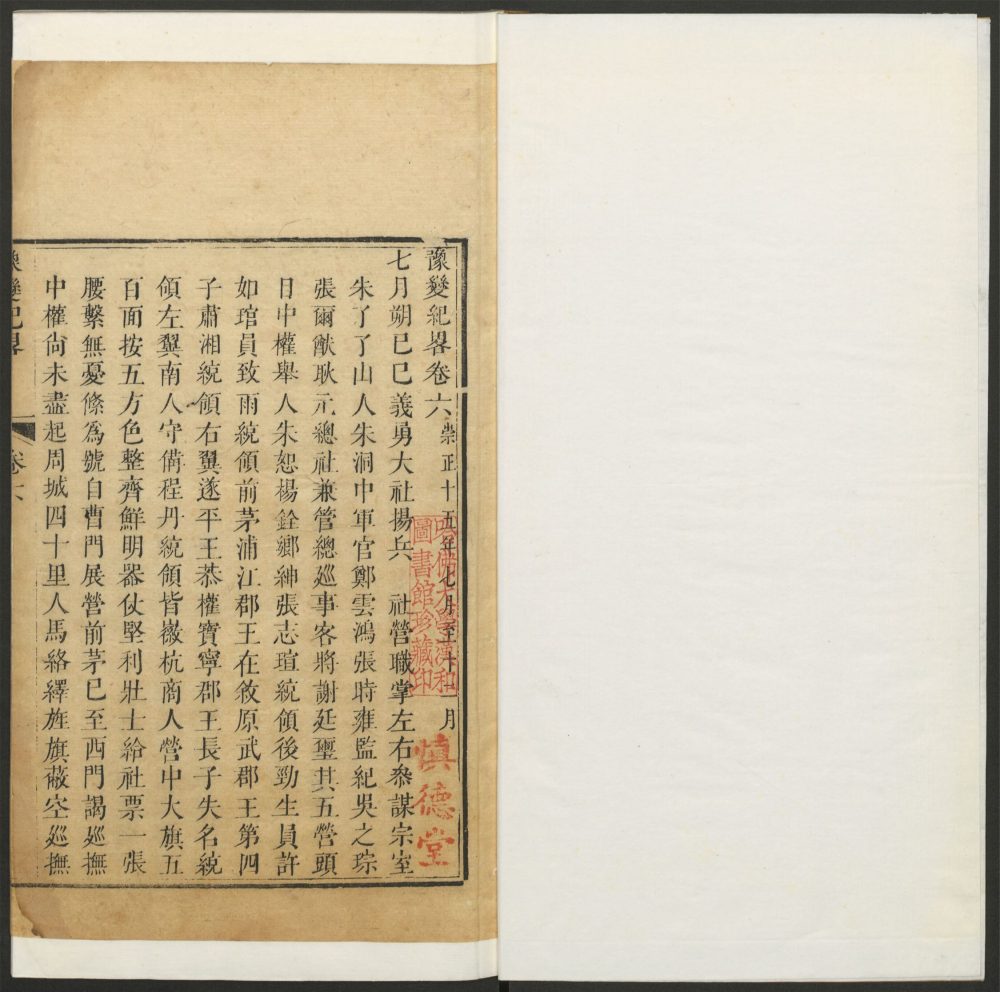 豫變紀畧卷六 崇正十五年七月至十二月
七月朔已巳義勇大社揚兵 社營職掌左右叅謀宗室
朱了了山人朱洞中軍官鄭雲鴻張時雍監紀吳之琮
張爾猷耿元總社兼管總廵事客將謝延璽共五營頭
日中權舉人朱恕楊銓鄉紳張志瑄統領後勁生員許
如琯員致雨統領前茅浦江郡王在敘原武郡王第四
子肅湘統領右翼遂平王㳟權寶寧郡王長子失名統
領左翼南人守偹程丹統領皆徽杭商人營中大旗五
百面按五方色整齊鮮明器仗堅利壯士給社票一張
腰繫無憂絛爲號自曹門展營前茅已至西門謁廵撫
中權尙未盡起周城四十里人馬絡繹旌旗蔽空廵撫
豫變紀畧 卷六
哈佛大學漢和
圖書館珍藏印
慎德堂